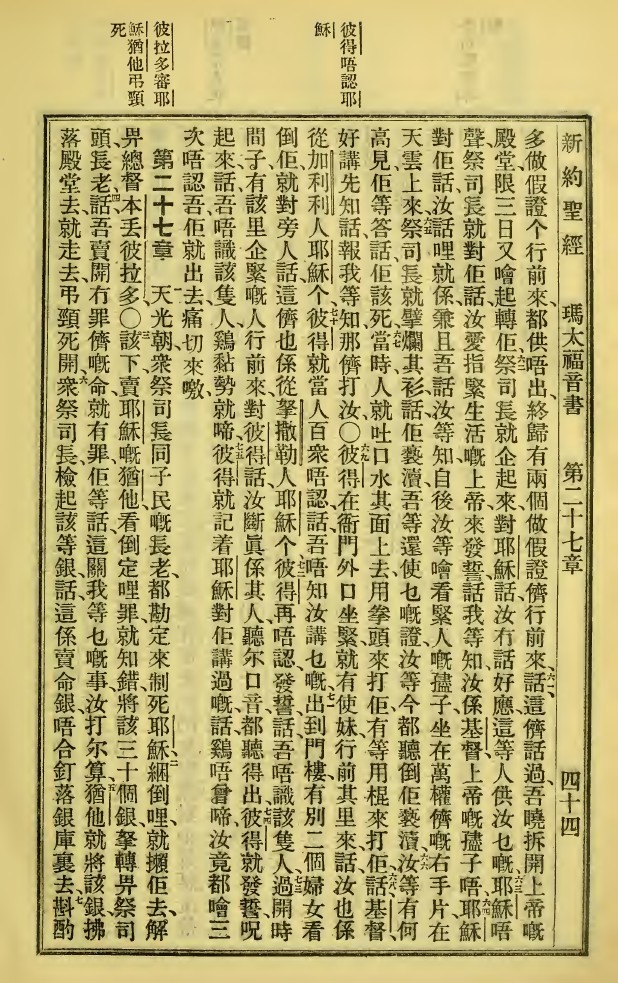 彼得唔認耶
穌
彼拉多審耶
穌猶他弔頸
死
新約聖經 瑪太福音書 第二十七章 四十四
多做假證个行前來、都供唔出、終歸有兩個做假證儕行前來、六一話這儕話過、吾曉拆開上帝嘅
殿堂、限三日又噲起轉佢、六二祭司長就企起來、對耶穌話、汝冇話好應、這等人供汝乜嘅、六三耶穌唔
聲、祭司長就對佢話、汝愛指緊生活嘅上帝來發誓、話我等知、汝係基督上帝嘅孻子唔、六四耶穌
對佢話、汝話哩就係、兼且吾話汝等知、自後汝等噲看緊人嘅孻子、坐在萬權儕嘅右手片、在
天雲上來、六五祭司長就擘爛其衫話、佢褻瀆、吾等還使乜嘅證、汝等今都聽倒佢褻瀆、六六汝等有何
高見、佢等答話、佢該死、六七當時人就吐口水其面上去、用拳頭來打佢、有等用棍來打佢話、六八基督、
好講先知話報我等知、那儕打汝、〇六九彼得在衙門外口坐緊、就有使妹行前其里來話、汝也係
從加利利人耶穌个、七十彼得就當人百衆唔認話、吾唔知汝講乜嘅、七一出到門樓、有別二個婦女看
倒佢、就對旁人話、這儕也係從拏撒勒人耶穌个、七二彼得再唔認、發誓話、吾唔識該隻人、七三過開時
間子、有該里企緊嘅人行前來對彼得話、汝斷眞係其人、聽尔口音都聽得出、七四彼得就發誓呪
起來話、吾唔識該隻人、鷄黏勢就啼、七五彼得就記着耶穌對佢講過嘅話、鷄唔曾啼、汝竟都噲三
次唔認吾、佢就出去痛切來噭、
第二十七章 一天光朝、衆祭司長同子民嘅長老、都勘定來制死耶穌、二綑倒哩、就攋佢去解
畀總督本丢彼拉多、〇三該下賣耶穌嘅猶他看倒定哩罪、就知錯、將該三十個銀拏轉畀祭司
頭長老話、四吾賣開冇罪儕嘅命、就有罪、佢等話、這關我等乜嘅事、汝打尔算、五猶他就將該銀拂
落殿堂去、就走去弔頸死開、六衆祭司長檢起該等銀話、這係賣命銀、唔合釘落銀庫裏去、七斟酌